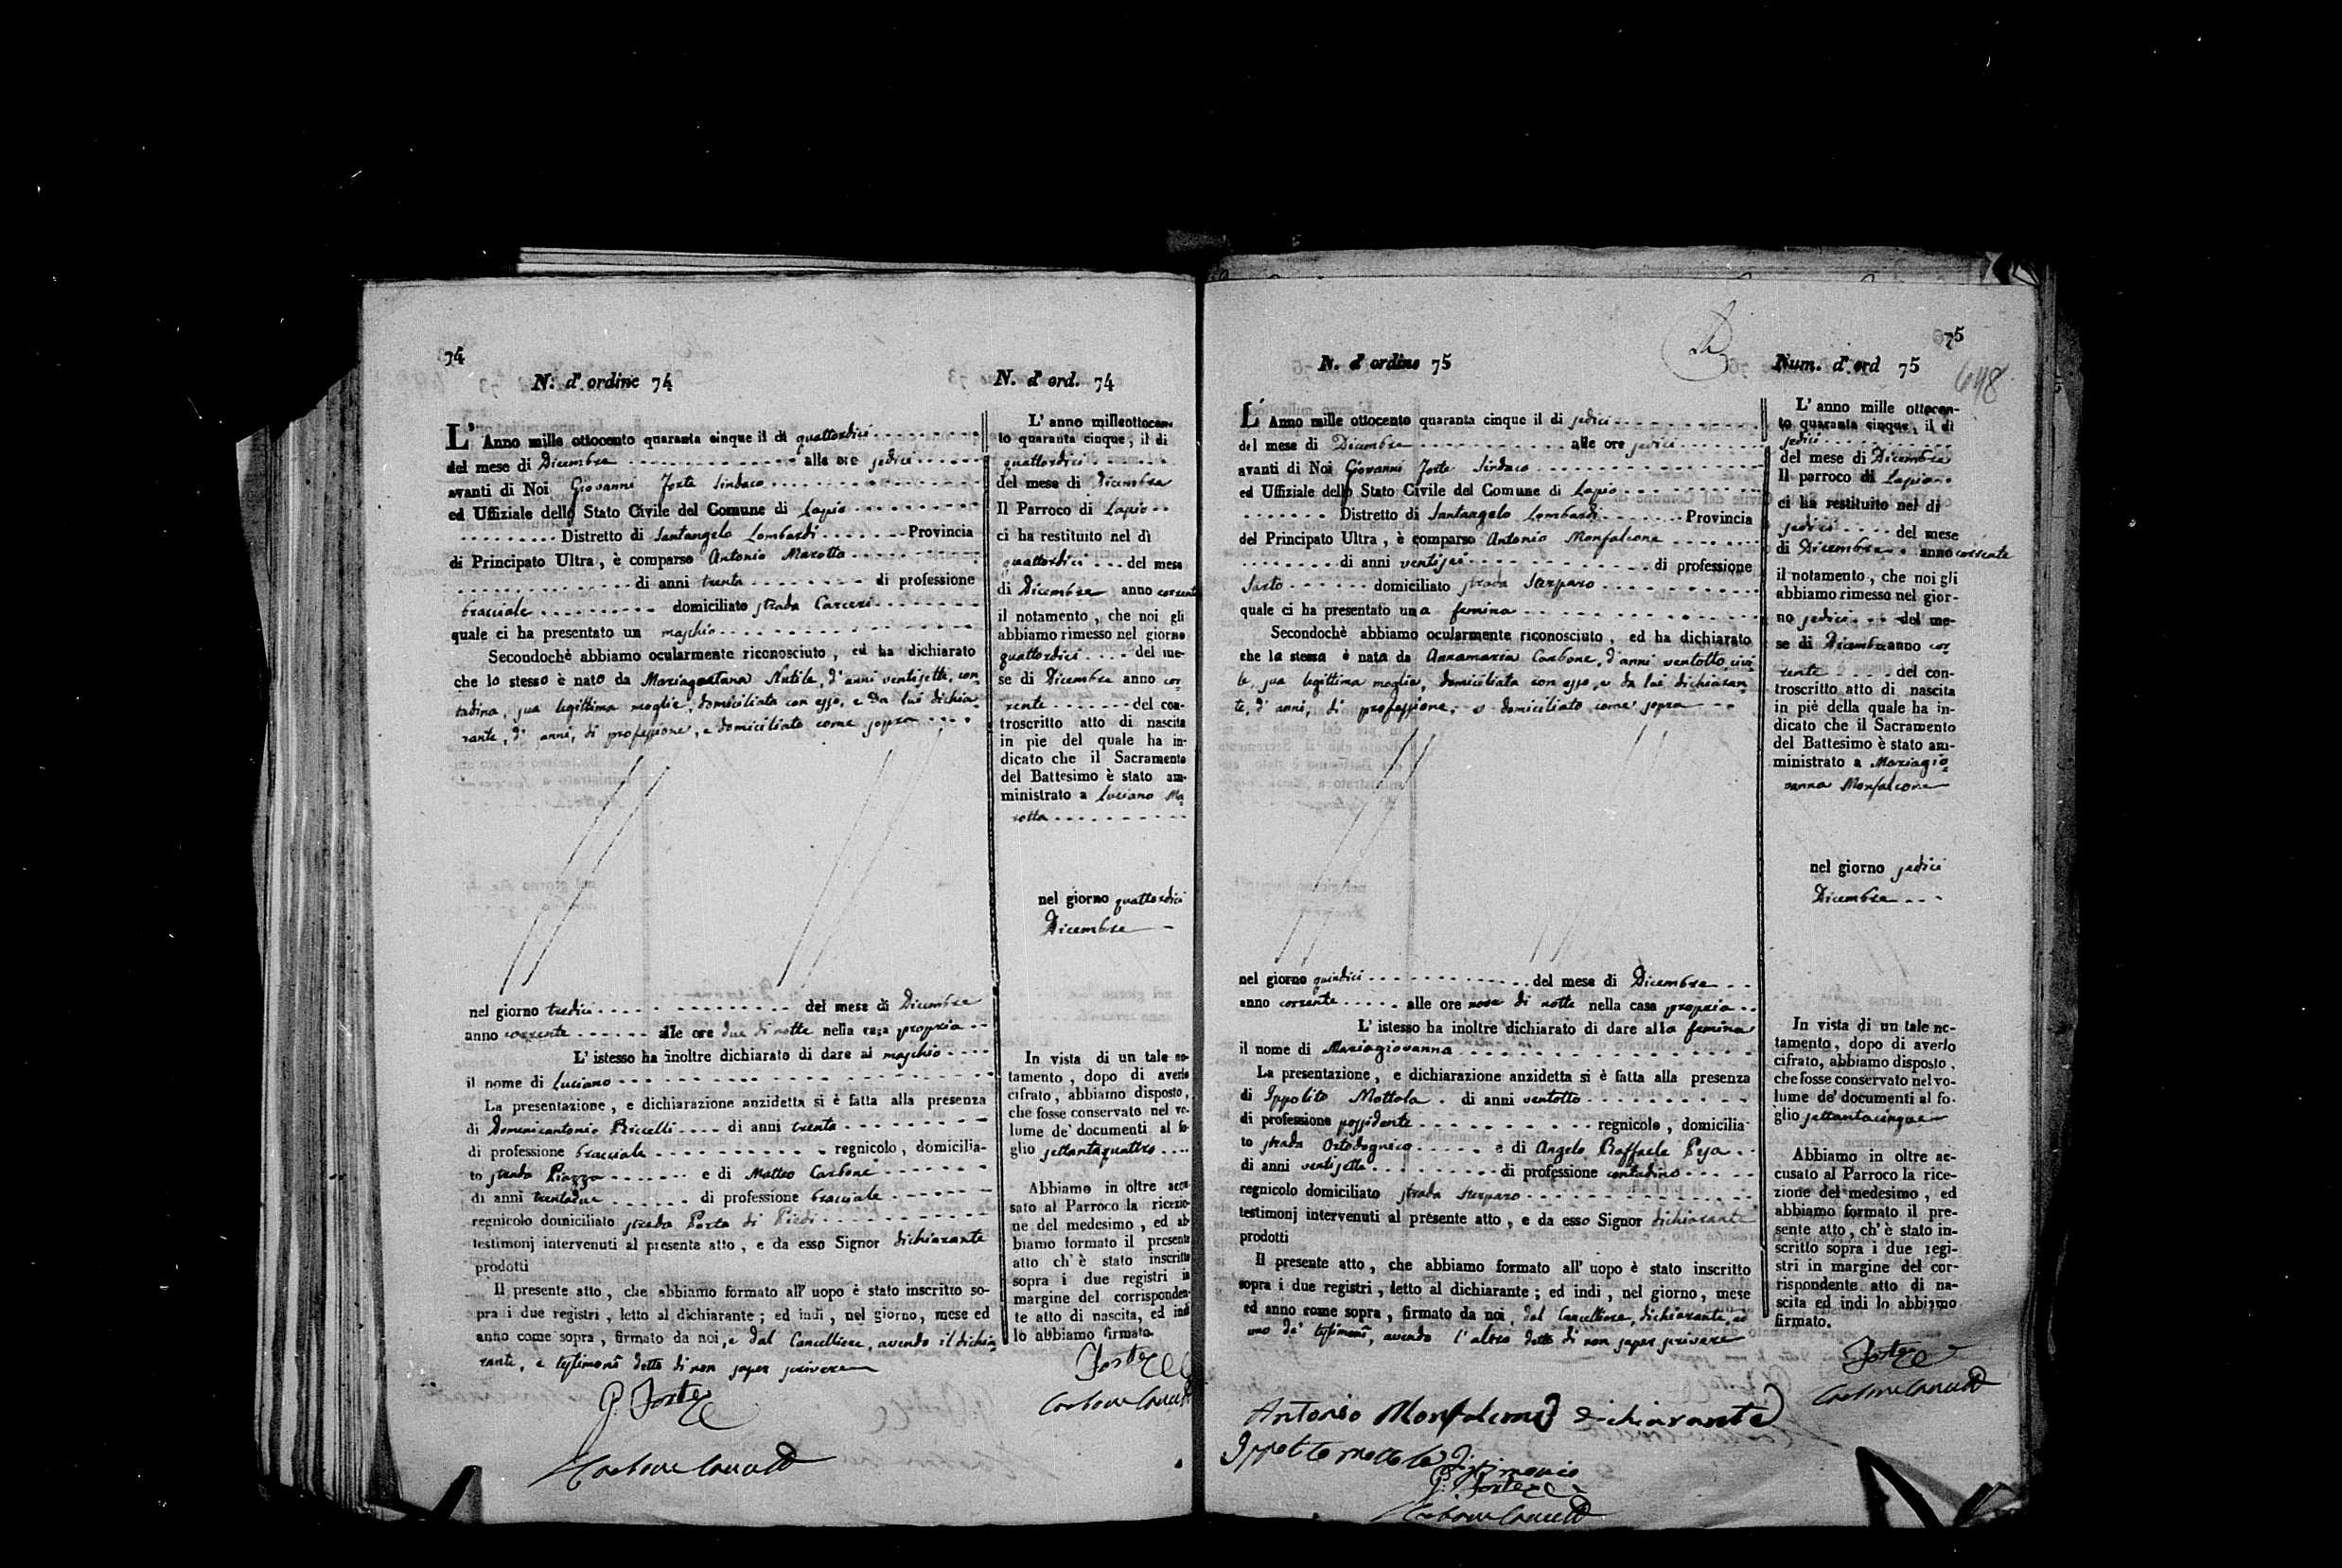 74
N. d'ordine 74
L'Anno mille ottocento quaranta cinque il di quattordici
del mese di Dicembre alle ore sedici
avanti di Noi Giovanni Forte Sindaco
ed Uffiziale dello Stato Civile del Comune di Lapio
Distretto di Santangelo Lombardi Provincia
di Principato Ultra, è comparso Antonio Marotta
di anni trenta di professione
bracciale domiciliato strada Carceri
quale ci ha presentato un maschio
Secondochè abbiamo ocularmente riconosciuto, ed ha dichiarato
che lo stesso è nato da Mariagaetana d'anni ventisette, con-
tadina, sua legittima moglie, domiciliata con esso, e da lui dichia-
rante, d'anni, di professione, e domiciliato come sopra
nel giorno tredici del mese di Dicembre
anno corrente alle ore due di notte nella casa propria
L'istesso ha inoltre dichiarato di dare al maschio
il nome di Luciano
La presentazione, e dichiarazione anzidetta si è fatta alla presenza
di Domenicantonio Riccelli di anni trenta
di professione bracciale regnicolo, domicilia-
to strada Piazza e di Matteo Carbone
di anni trentadue di professione bracciale
regnicolo domiciliato strada Porta di Piedi
testimonj intervenuti al presente atto, e da esso Signor dichiarante
prodotti
Il presente atto, che abbiamo formato all'uopo è stato inscritto so-
pra i due registri, letto al dichiarante; ed indi, nel giorno, mese ed
anno come sopra, firmato da noi, e dal Cancelliere, avendo il dichia-
rante, e testimonî detto di non saper scrivere
G. Forte
Carbone
N. d'ord. 74
L'anno milleottocen-
to quaranta cinque, il di
quattordici
del mese di Dicembre
Il Parroco di Lapio
ci ha restituito nel dì
quattordici del mese
di Dicembre anno corrente
il notamento, che noi gli
abbiamo rimesso nel giorno
quattordici del me-
se di Dicembre anno cor-
rente del con-
troscritto atto di nascita
in pie del quale ha in-
dicato che il Sacramento
del Battesimo è stato am-
ministrato a Luciano Ma-
rotta
nel giorno quattordici
Dicembre
In vista di un tale no-
tamento, dopo di averlo
cifrato, abbiamo disposto,
che fosse conservato nel vo-
lume de' documenti al fo-
glio settantaquattro
Abbiamo in oltre accu-
sato al Parroco la ricezio-
ne del medesimo, ed ab-
biamo formato il presente
atto ch'è stato inscritto
sopra i due registri in
margine del corrisponden-
te atto di nascita, ed indi
lo abbiamo firmato.
Forte
Carbone
75
N. d'ordine 75
L'Anno mille ottocento quaranta cinque il di sedici
del mese di Dicembre alle ore sedici
avanti di Noi Giovanni Forte Sindaco
ed Uffiziale dello Stato Civile del Comune di Lapio
Distretto di Santangelo Lombardi Provincia
del Principato Ultra, è comparso Antonio Monfalcone
di anni ventisei di professione
Sarto domiciliato strada Sterparo
quale ci ha presentato una femina
Secondochè abbiamo ocularmente riconosciuto, ed ha dichiarato
che la stessa è nata da Annamaria Carbone, d'anni ventotto, civi-
le, sua legittima moglie, domiciliata con esso, e da lui dichiaran-
te, d'anni, di professione, e domiciliato come sopra
nel giorno quindici del mese di Dicembre
anno corrente alle ore nove di notte nella casa propria
L'istesso ha inoltre dichiarato di dare alla femina
il nome di Mariagiovanna
La presentazione, e dichiarazione anzidetta si è fatta alla presenza
di Ippolito Mottola di anni ventotto
di professione possidente regnicolo, domicilia-
to strada Ortodognico e di Angelo Raffaele Pisa
di anni ventisette di professione contadino
regnicolo domiciliato strada Sterparo
testimonj intervenuti al présente atto, e da esso Signor dichiarante
prodotti
Il presente atto, che abbiamo formato all'uopo è stato inscritto
sopra i due registri, letto al dichiarante; ed indi, nel giorno, mese
ed anno come sopra, firmato da noi, dal Cancelliere, dichiarante, ed
uno de' testimonî, avendo l'altro detto di non saper scrivere
Antonio Monfalcone dichiarante
Ippolito Mottola Testimonio
G. Forte
Carbone
Num. d'ord 75
648
L'anno mille ottocen-
to quaranta cinque, il di
sedici
del mese di Dicembre
Il parroco di Lapio
ci ha restituito nel di
sedici del mese
di Dicembre anno corrente
il notamento, che noi gli
abbiamo rimesso nel gior-
no sedici del me-
se di Dicembre anno cor-
rente del con-
troscritto atto di nascita
in piè della quale ha in-
dicato che il Sacramento
del Battesimo è stato am-
ministrato a Mariagio-
vanna Monfalcone
nel giorno sedici
Dicembre
In vista di un tale no-
tamento, dopo di averlo
cifrato, abbiamo disposto,
che fosse conservato nel vo-
lume de' documenti al fo-
glio settantacinque
Abbiamo in oltre ac-
cusato al Parroco la rice-
zione del medesimo, ed
abbiamo formato il pre-
sente atto, ch'è stato in-
scritto sopra i due regi-
stri in margine del cor-
rispondente atto di na-
scita ed indi lo abbiamo
firmato.
Forte
Carbone